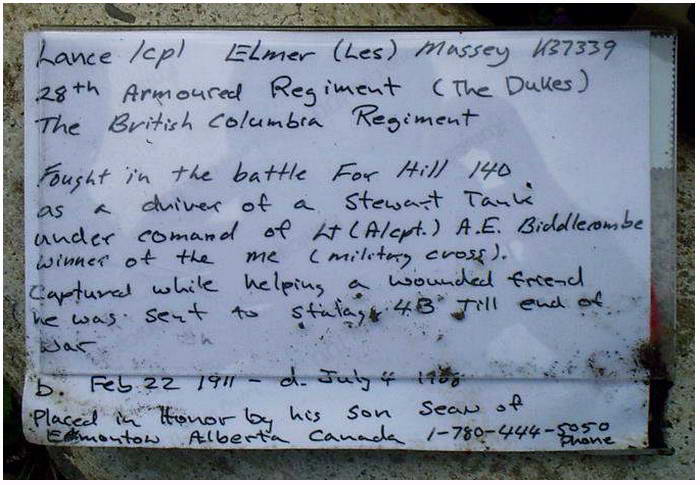 Lance /cpl Elmer (Les) Massey K37339
28th Armoured Regiment (The Dukes)
The British Columbia Regiment
Fought in the battle For Hill 140
as a driver of a Stewart Tank
under comand of Lt (A/cpt.) A.E. Biddlecombe
winner of the mc (military cross).
Captured while helping a wounded friend
he was sent to Stalag 4B Till end of
war
b. Feb 22 1911 - d. July 4
Placed in Honor by his son Sean of
Edmonton Alberta Canada 1-780-444-5050
Phone